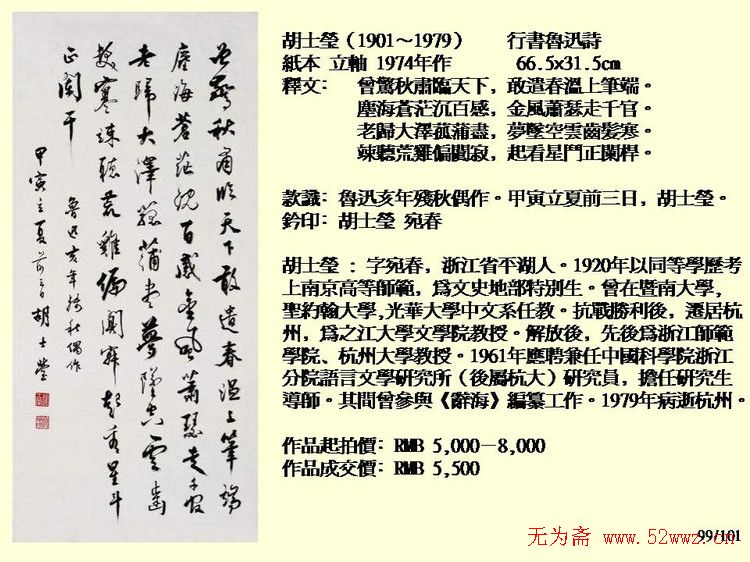 曾驚秋肅臨天下敢遣春溫上筆端
塵海蒼茫沉百感金風蕭瑟走千官
老歸大澤菰蒲盡夢墜空雲齒
髮寒竦聽荒雞偏闃寂起看星斗
正闌干
魯迅亥年殘秋偶作
甲寅立夏前三日胡士瑩
胡士瑩（1901～1979） 行書魯迅詩
紙本 立軸 1974年作 66.5x31.5cm
釋文： 曾驚秋肅臨天下，敢遣春溫上筆端。
塵海蒼茫沉百感，金風蕭瑟走千官。
老歸大澤菰蒲盡，夢墜空雲齒髮寒。
竦聽荒雞偏闃寂，起看星鬥正闌桿。
款識：魯迅亥年殘秋偶作。甲寅立夏前三日，胡士瑩。
鈐印：胡士瑩 宛春
胡士瑩 : 字宛春，浙江省平湖人。1920年以同等學歷考
上南京高等師範，為文史地部特別生。曾在暨南大學，
聖約翰大學,光華大學中文系任教。抗戰勝利後，遷居杭
州，為之江大學文學院教授。解放後，先後為浙江師範
學院、杭州大學教授。1961年應聘兼任中國科學院浙江
分院語言文學研究所（後屬杭大）研究員，擔任研究生
導師。其間曾參與《辭海》編纂工作。1979年病逝杭州。
作品起拍價: RMB 5,000－8,000
作品成交價: RMB 5,500
99/101
无为斋 www.52wwz.cn